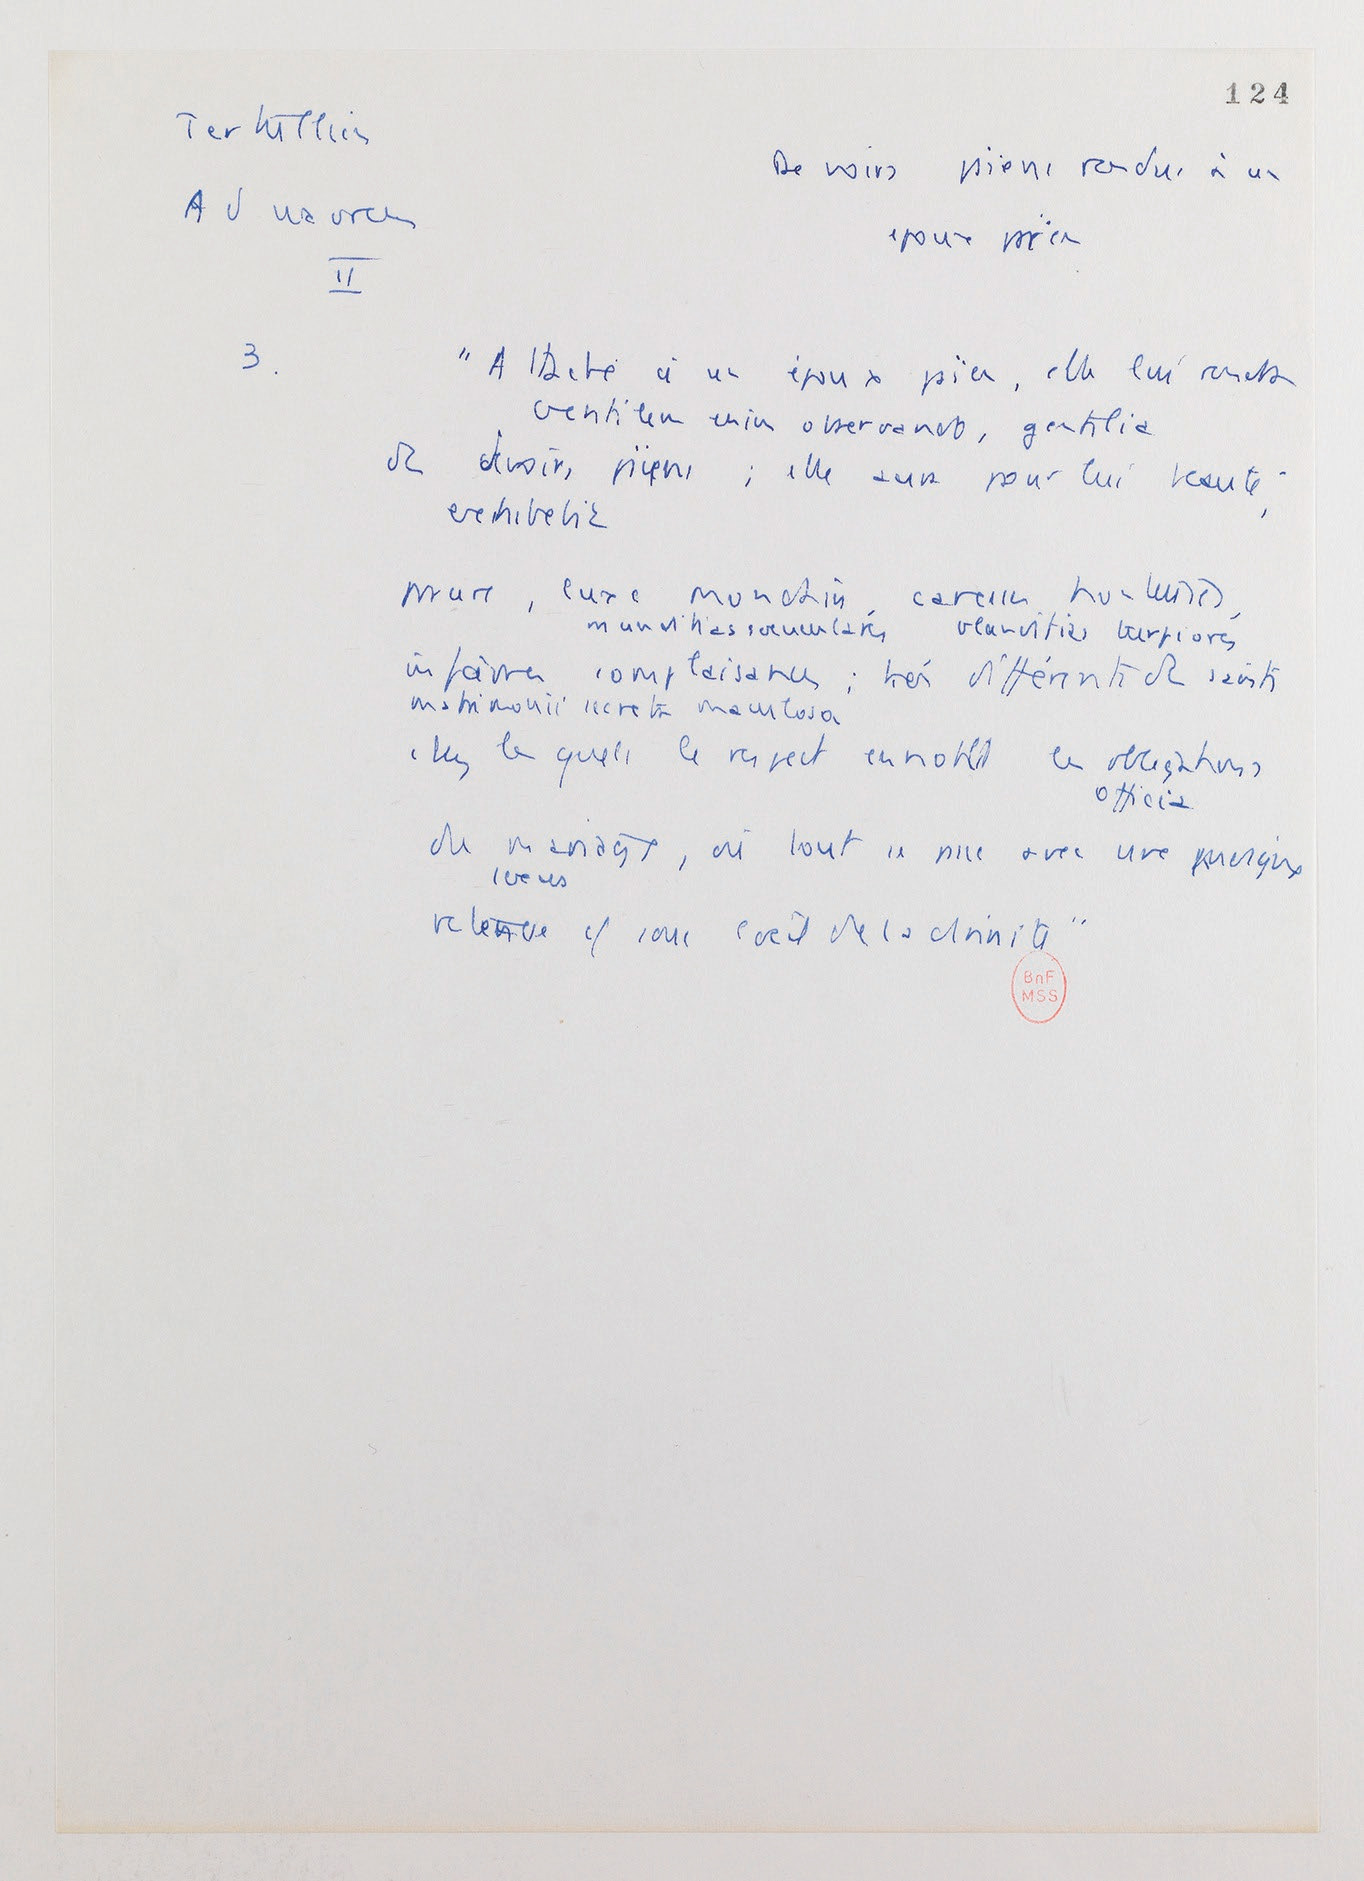 124
Tertullien
Ad uxorem
II
Devoirs païens rendus à un
époux païen
3.
"Attachée à un époux païen, elle lui rendra
gentilem enim observando, gentilia
de devoirs païens ; elle aura pour lui beauté,
exhibebit
parure, luxe mondain, caresses honteuses,
munditias saeculares blanditias turpiores
infâmes complaisances ; très différents de saints
matrimonii secreta maculosa
chez lesquels le respect ennoblit les obligations
officia
du mariage, où tout se passe avec une
sexus
retenue et sous l'oeil de la divinité"
BnF
MSS